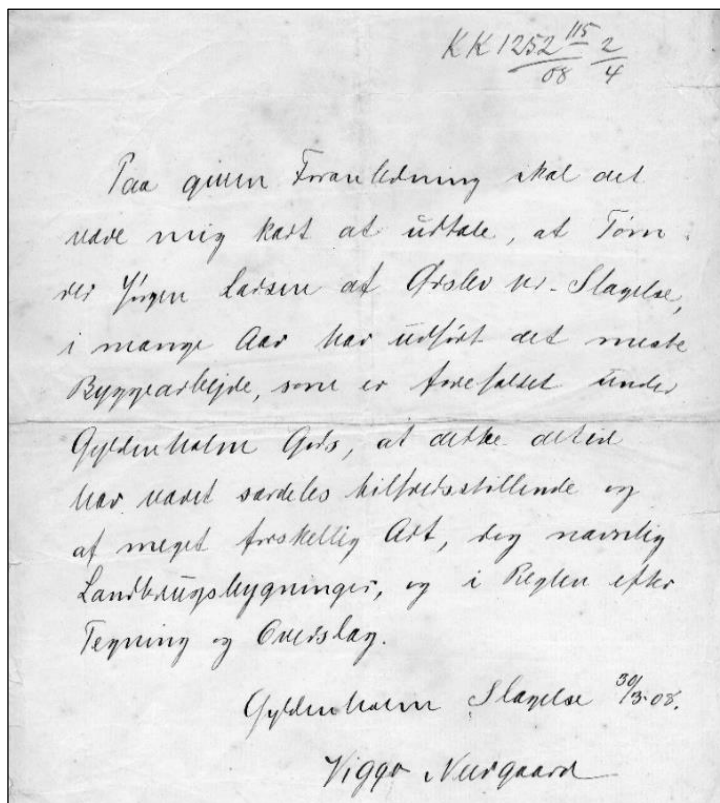 KK 1252 115/08 2/4
Paa given Foranledning skal det
være mig kært at udtale, at Tøm-
rer Jørgen Larsen af Ørslev pr. Slagelse,
i mange Aar har udført det meste
Byggearbejde, som er forefaldet under
Gyldenholm Gods, at dette
har været særdeles tilfredsstillende og
af meget forskellig Art, dog navnlig
Landbrugsbygninger, og i Reglen efter
Tegning og Overslag.
Gyldenholm Slagelse 30/3-08.
Viggo Neergaard